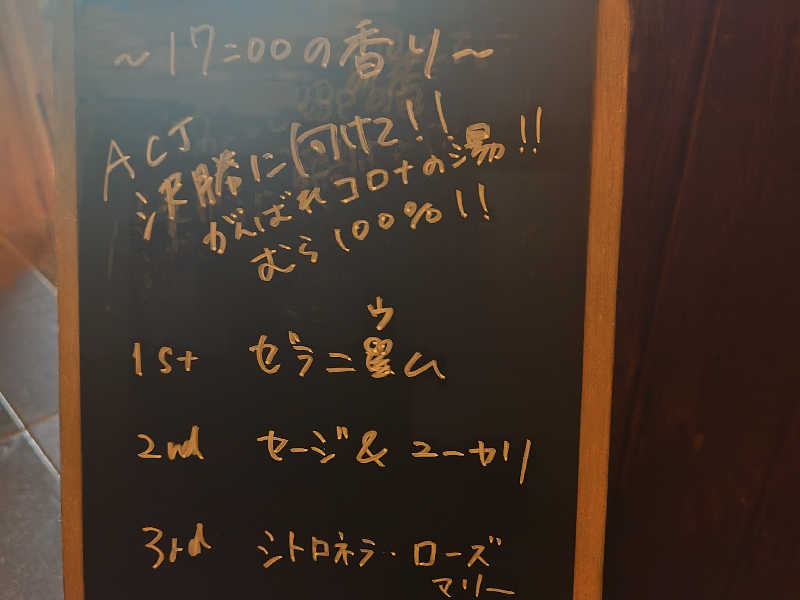 ～17:00の香り～
ACJ
決勝に向けた!!
がんばれコロナの湯!!
むら100%!!
ウ
1st ゼラニム
2nd セージ&ユーカリ
3rd シトロネラ・ローズ
マリー